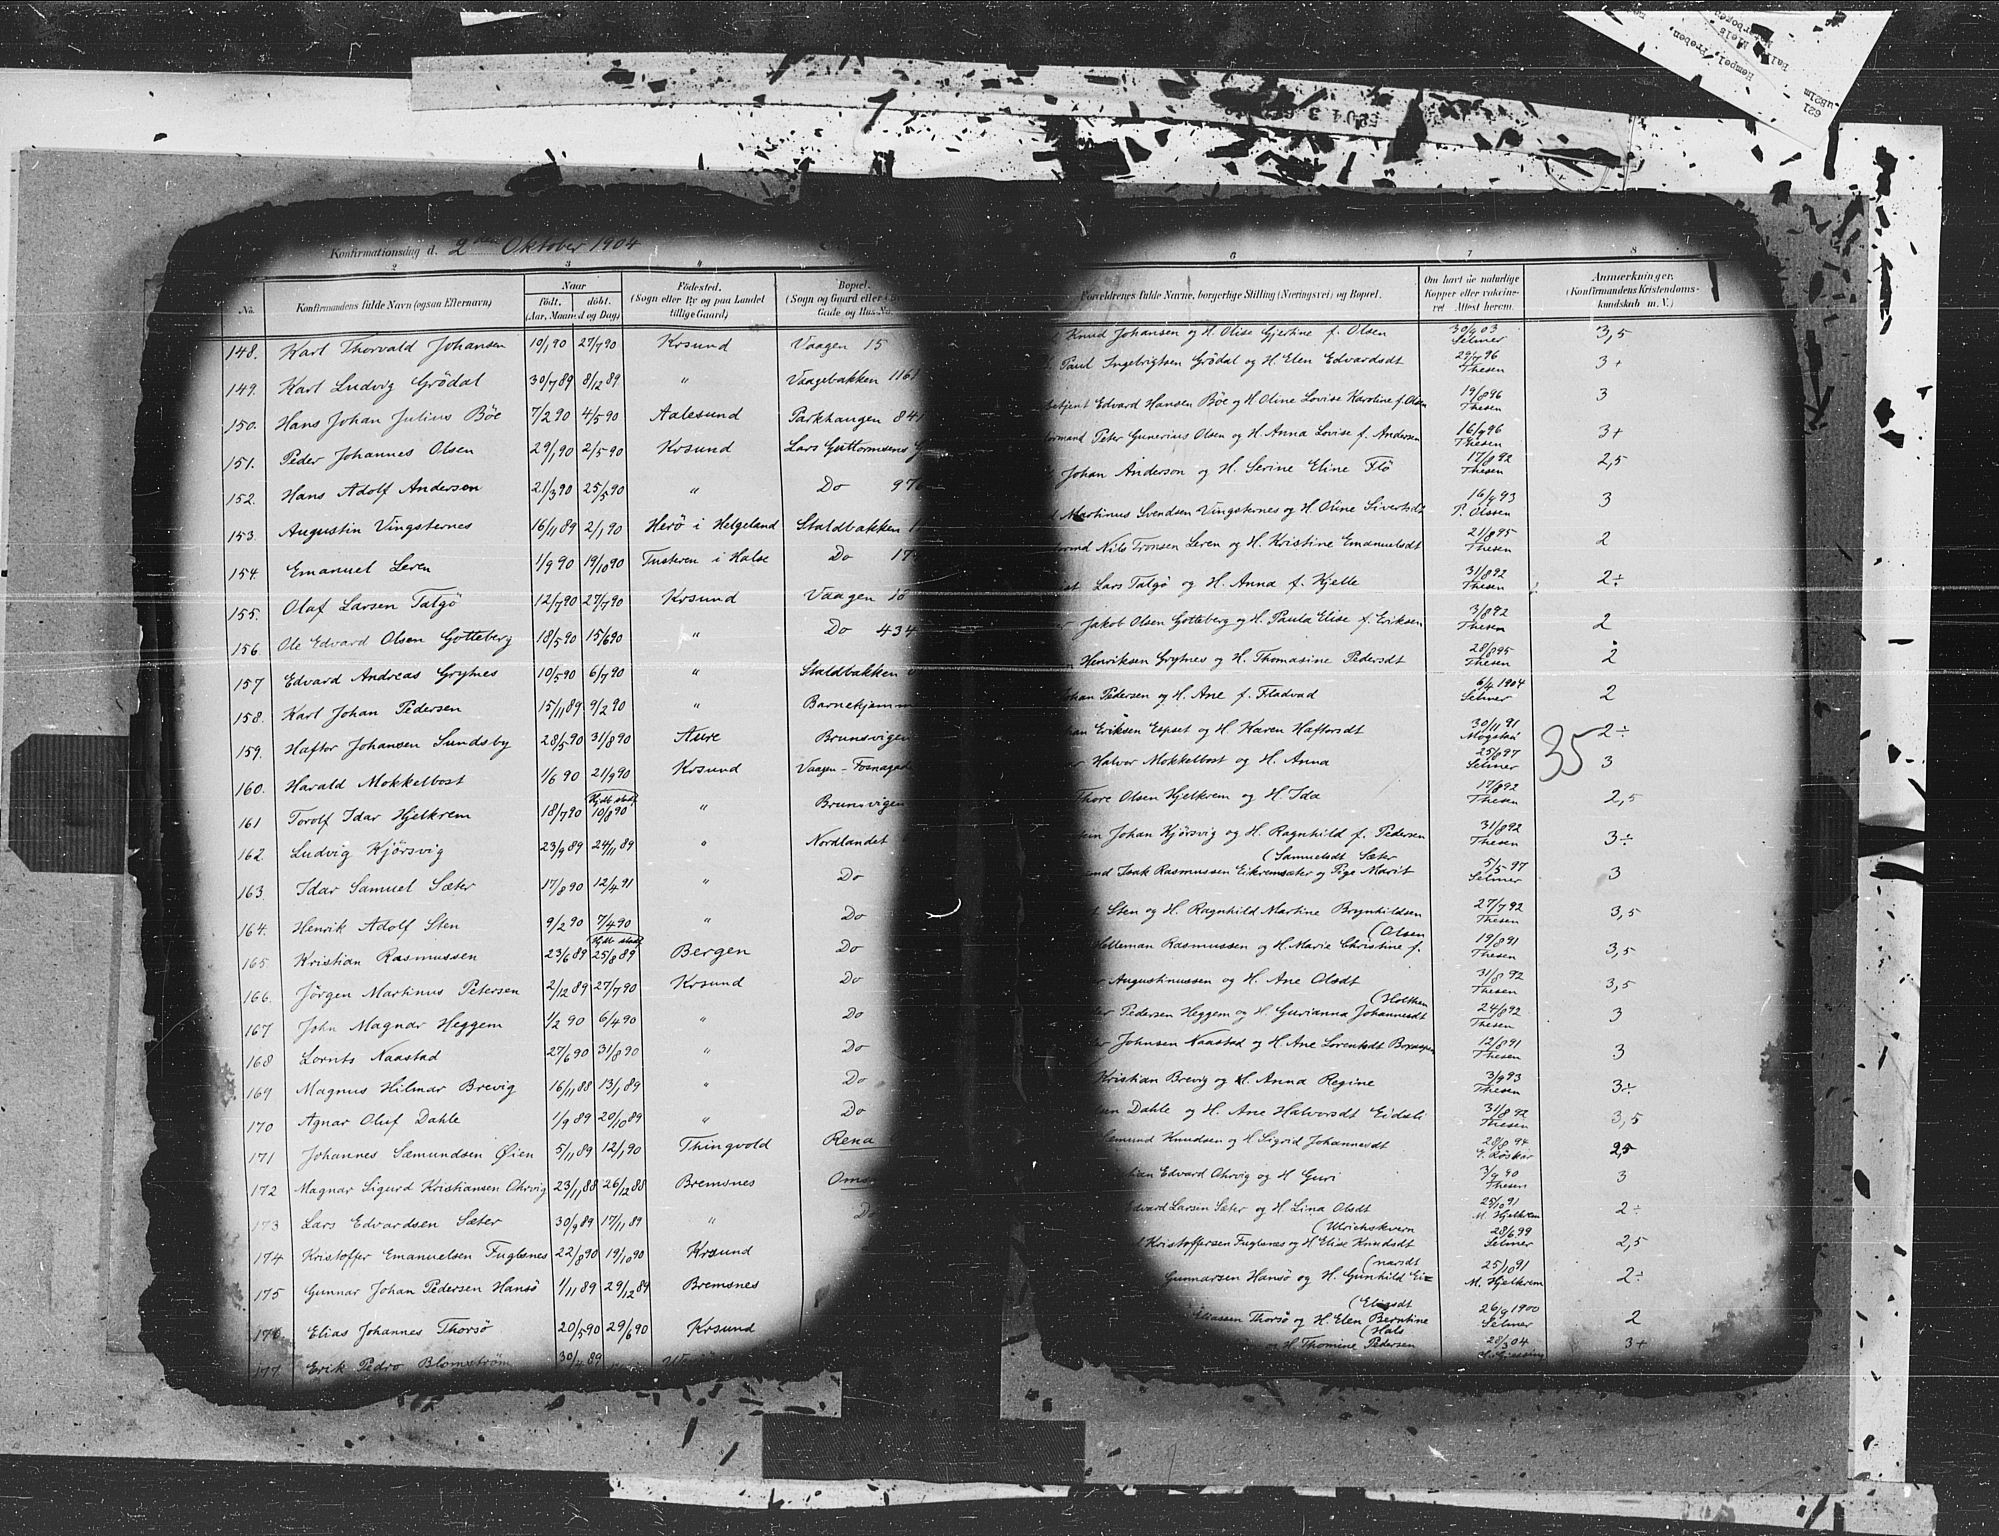 Konfirmationsdag d. 2den Oktober 1904
No. Konfirmandens fulde Navn (ogsaa Efternavn) Naar født, døbt. (Aar, Maaned og Dag) Fødested. (Sogn eller By og paa Landet tillige Gaard) Bopæl. (Sogn og Gaard eller Gade og Hus-No. Forældrenes fulde Navne, borgerlige Stilling (Næringsvei) og Bopæl. Om havt de naturlige Kopper eller vaccineret Attest herom. Anmærkninger. (Konfirmandens Kristendomskundskab m. V.)
148. Karl Thorvald Johansen 10/1 90 27/7 90 Krsund Vaagen 15 Knud Johansen og H. Olise Gjertine f. Olsen 30/9 03 Selmer 3,5
149. Karl Ludvig Grödal 30/7 89 8/12 89 " Vaagebakken 1161 Paul Ingebrigtsen Grödal og H. Elen Edvardsdt 29/7 96 Thesen 3+
150. Hans Johan Julius Böe 7/2 90 4/5 90 Aalesund Parkhaugen 841 betjent Edvard Hansen Böe og H. Oline Lovise Karoline f. Olsen 19/8 96 Thesen 3
151. Peder Johannes Olsen 29/1 90 2/5 90 Krsund Lars Guttormsens G formand Peter Gunerius Olsen og H. Anna Lovise f. Andersen 16/9 96 Thesen 3+
152. Hans Adolf Andersen 21/3 90 25/5 90 " Do 976 Johan Anderson og H. Serine Eline Flö 17/8 92 Thesen 2,5
153. Augustin Vingsternes 16/11 89 2/1 90 Herö i Helgeland Staldbakken Martinus Svendsen Vingsternes og H. Oline Sivertsdt 16/9 93 P. Olssen 3
154. Emanuel Leren 1/9 90 19/10 90 Tusteren i Halse Do 17 Nils Tronsen Leren og H. Kristine Emanuelsdt 21/8 95 Thesen 2
155. Olaf Larsen Talgö 12/7 90 27/7 90 Krsund Vaagen 18 Lars Talgö og H. Anna f. Kjelle 31/8 92 Thesen 2÷
156 Ole Edvard Olsen Gotteberg 18/5 90 15/6 90 " Do 434 Jakob Olsen Gotteberg og H. Paula Elise f. Eriksen 3/8 92 Thesen 2
157 Edvard Andreas Grytnes 10/5 90 6/7 90 " Staldbakken Henriksen Grytnes og H. Thomasine Pedersdt 28/8 95 Thesen 2
158. Karl Johan Pedersen 15/11 89 9/2 90 " Barnehjemm Johan Pedersen og H. Ane f. Fladvad 6/4 1904 Selmer 2
159. Haftor Johansen Sundsby 28/5 90 31/8 90 Aure Brunsvigen Eriksen Espset og H. Karen Haftorsdt 30/11 91 Mogstad 2÷
35
160. Harald Mokkelbost 1/6 90 21/9 90 Krsund Vaagen - Fosnagade Halvor Mokkelbost og H. Anna 25/8 97 Selmer 3
161 Torolf Idar Hjelkrem 18/7 90 (Hjdb stadf. 10/8 90 " Brunsvigen Thore Olsen Hjelkrem og H. Ida 17/8 92 Thesen 2,5
162. Ludvig Kjörsvig 23/9 89 24/11 89 " Nordlandet Johan Kjörsvig og H. Ragnhild f. Pedersen 31/8 92 Thesen 3÷
163. Idar Samuel Sæter 17/8 90 12/4 91 " Do Isak Rasmussen Eikremsæter og Pige Marit (Samuelsdt Sæter 5/5 97 Selmer 3
164. Henrik Adolf Sten 9/2 90 7/4 90 " Do Sten og H. Ragnhild Martine Brynhildsen 27/7 92 Thesen 3,5
165. Kristian Rasmussen 23/6 89 (Hjdb stadf. 25/8 89 Bergen Do Rasmussen og H. Marie Christine f. (Olsen 19/8 91 Thesen 3,5
166. Jörgen Martinus Petersen 2/12 89 27/7 90 Krsund Do Augustinussen og H. Ane Olsdt 31/8 92 Thesen 3,5
167 John Magnar Heggem 1/2 90 6/4 90 " Do Pedersen Heggem og H. Gurianna Johannesdt (Holthen 24/8 92 Thesen 3
168 Lornts Naastad 27/6 90 31/8 90 " Do Johnsen Naastad og H. Ane Lorentsdt 12/8 91 Thesen 3
169 Magnus Hilmar Brevig 16/11 88 13/1 89 " Do Kristian Brevig og H. Anna Regine 3/9 93 Thesen 3÷
170 Agnar Oluf Dahle 1/9 89 20/10 89 " Do Dahle og H. Ane Halvorsdt Eidsli 31/8 92 Thesen 3,5
171 Johannes Sæmundsen Øien 5/11 89 12/1 90 Thingvold Rena Knudsen og H. Sigrid Johannesdt 28/8 94 E. Röskar 2,5
172 Magnar Sigurd Kristiansen Ohrvig 23/11 88 26/12 88 Bremsnes Oms Edvard Ohrvig og H Guri 3/9 90 Thesen 3
173 Lars Edvardsen Sæter 30/9 89 17/11 89 " Do Edvard Larsen Sæter og H. Lina Olsdt 25/10 91 M. Hjelkrem 2÷
174 Kristoffer Emanuelsen Fuglsnes 22/8 90 19/10 90 Krsund Kristoffersen Fuglsnes og H. Elise Knudsdt (Ulrichskvern 28/6 99 Selmer 2,5
175 Gunnar Johan Pedersen Hansö 1/11 89 29/12 89 Bremsnes Gunnarsen Hansö og H. Gunhild Ei= (narsdt 25/10 91 M. Hjelkrem 2÷
176. Elias Johannes Thorsö 20/5 90 29/6 90 Krsund Eliassen Thorsö og H. Elen Berntine (Eliasdt 26/9 1900 Selmer 2
177. Erik Pedro Blomström 30/4 89 og H. Thomine Pedersen (Hals 28/3 04 3+